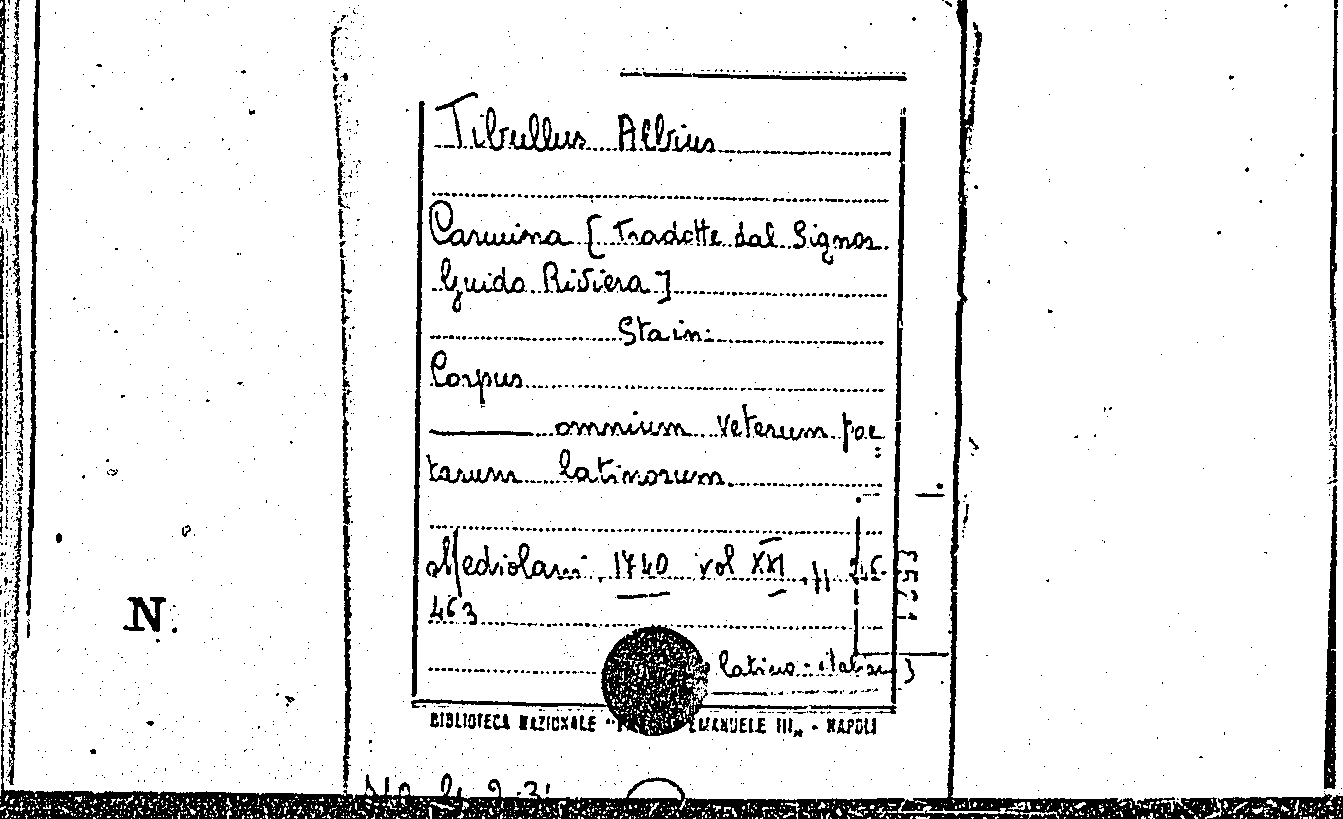 Tibullus Albius
Carmina [Tradotte dal Signor
Guido Riviera]
Sta in:
Corpus
omnium veterum poe
tarum latinorum.
Mediolani 1740 vol XXI
463
latino-italiano
BIBLIOTECA NAZIONALE " EMANUELE III„ - NAPOLI
N.